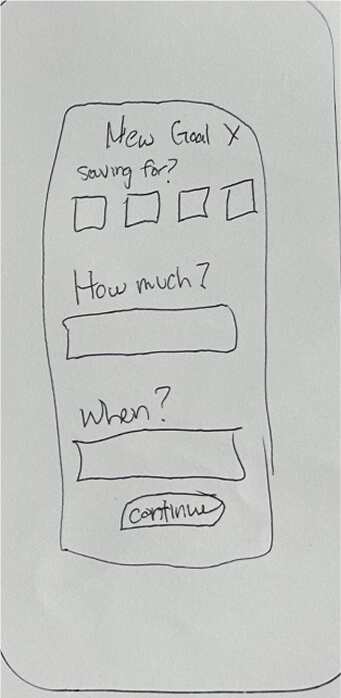 New Goal X
saving for?
How much?
When?
continue